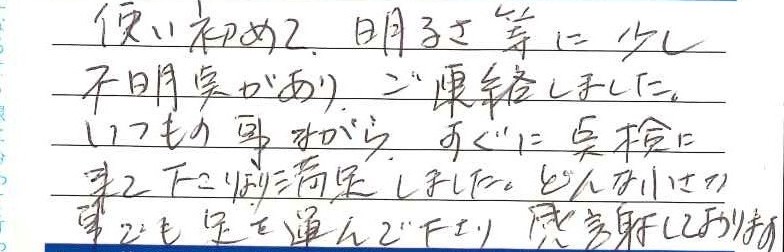 使い初めて、明るさ等に少し
不明点があり、ご連絡しました。
いつもの事ながら、すぐに点検に
来て下さり満足しました。どんな小さな
事でも足を運んで下さり感謝しております